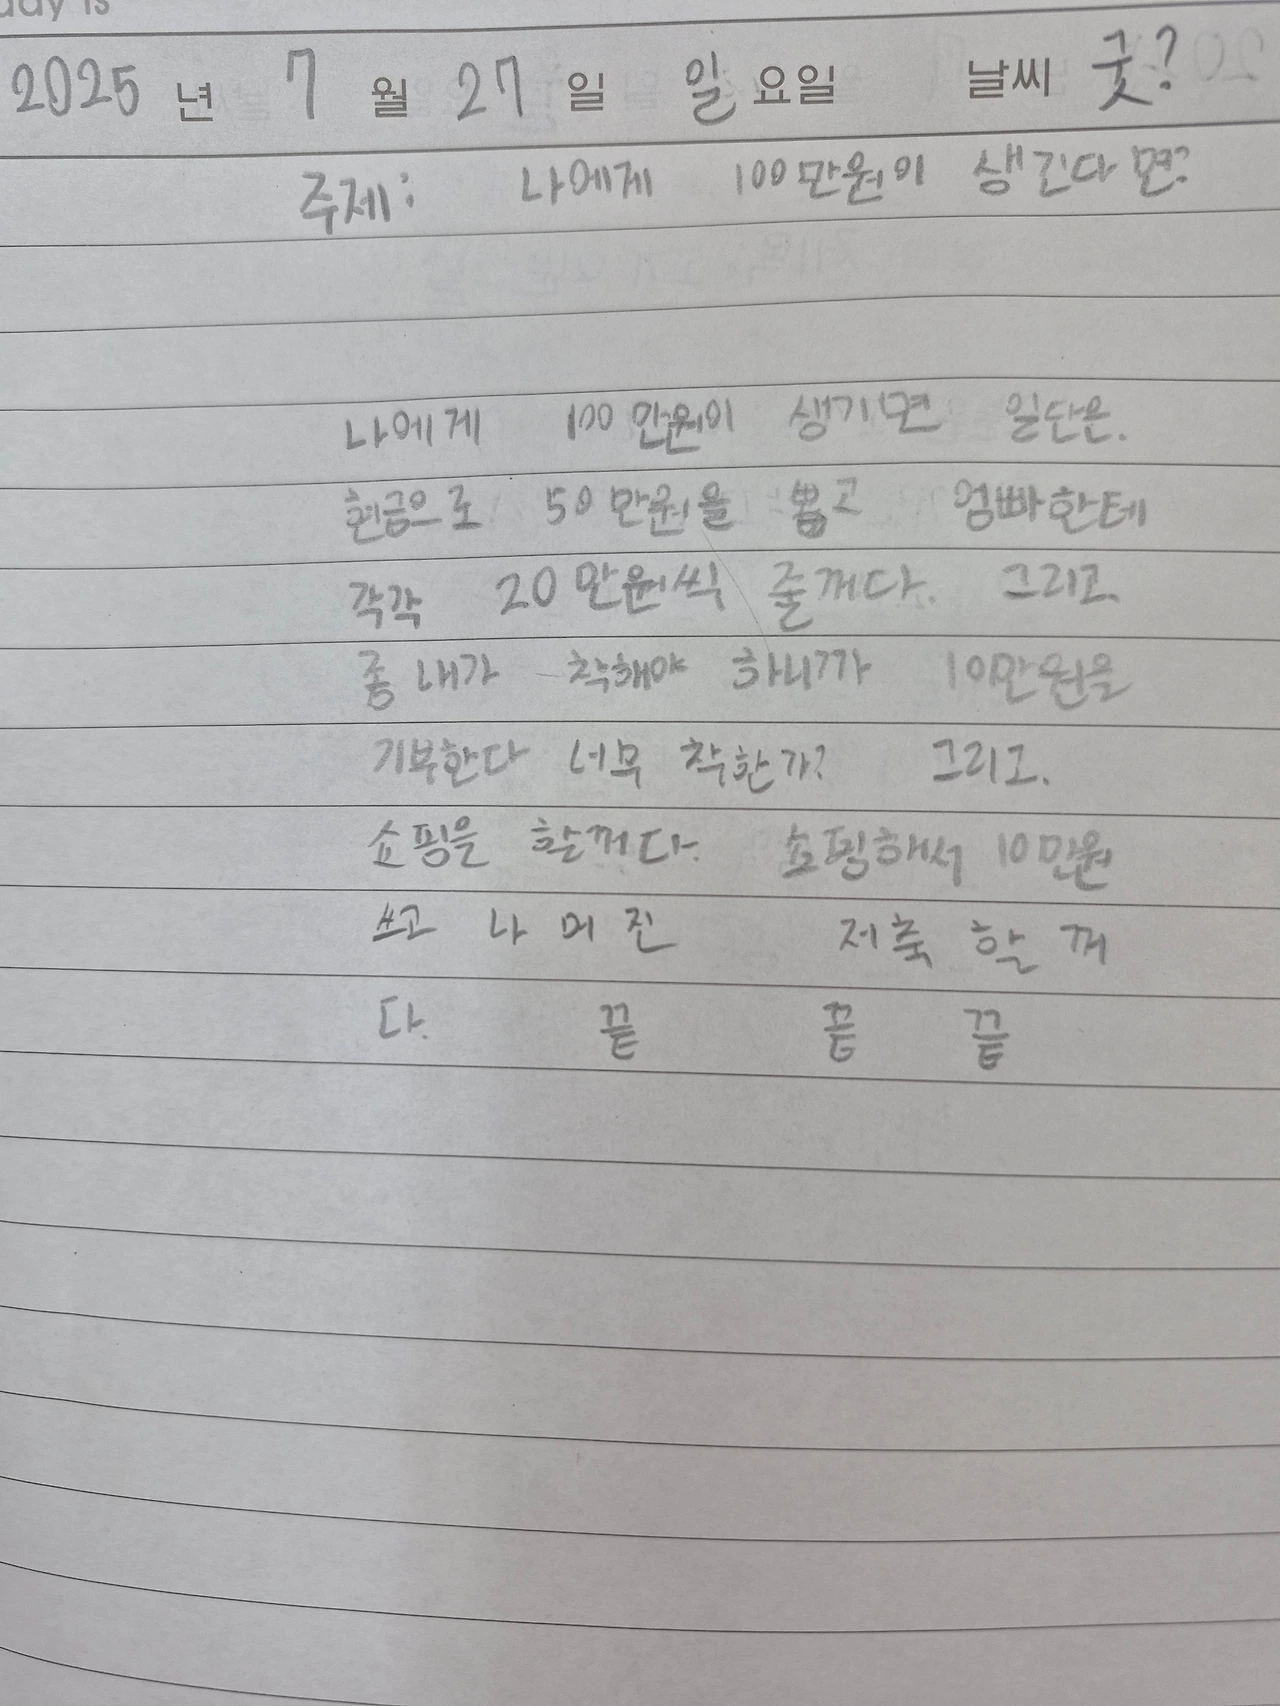 day is
2025 년 7 월 27 일 일 요일 날씨 굿?
주제: 나에게 100만원이 생긴다면?
나에게 100만원이 생기면 일단은.
현금으로 50만원을 뽑고 엄빠한테
각각 20만원씩 줄꺼다. 그리고.
좀 내가 착해야 하니까 10만원을
기부한다 너무 착한가? 그리고.
쇼핑을 할꺼다. 쇼핑해서 10만원
쓰고 나머진 저축 할꺼
다. 끝 끝 끝